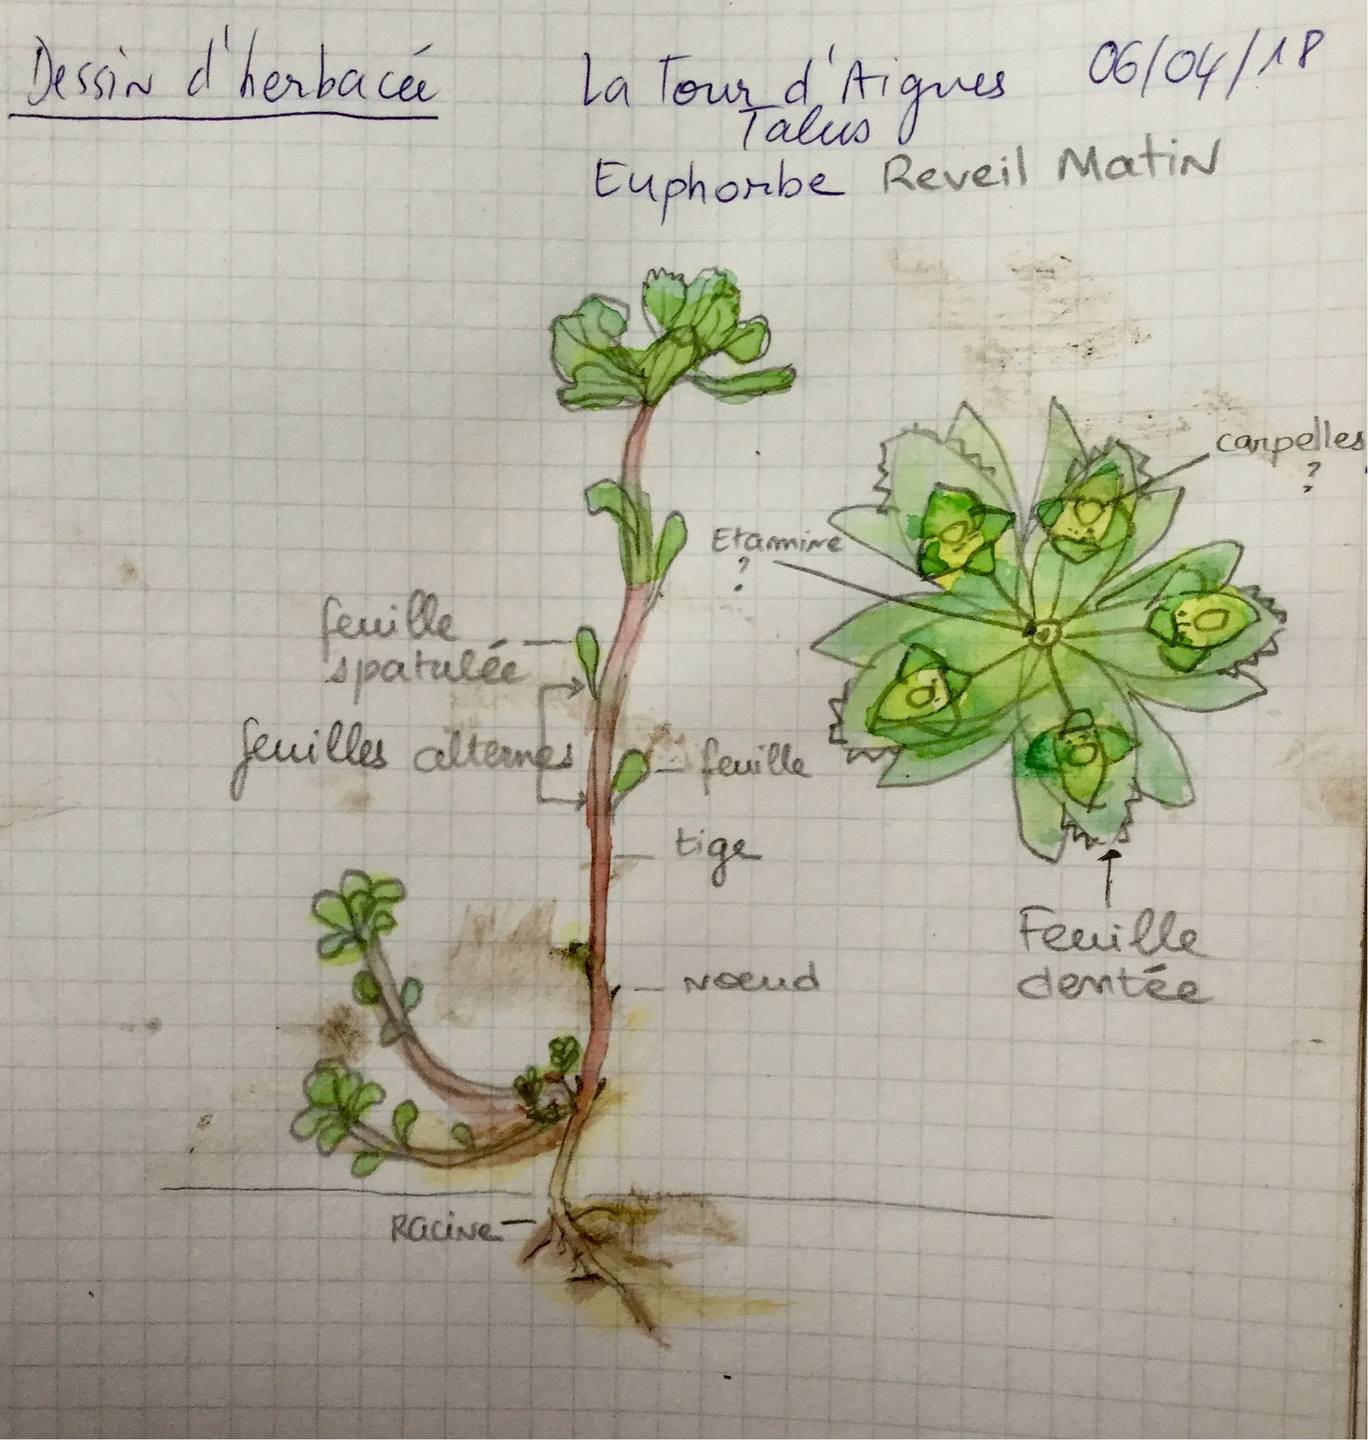 Dessin d'herbacée
La Tour d'Aigues 06/04/18
Talus
Euphorbe Reveil Matin
carpelles
?
Etamine
?
feuille
spatulée
feuilles alternes
feuille
tige
Feuille
dentée
nœud
Racine